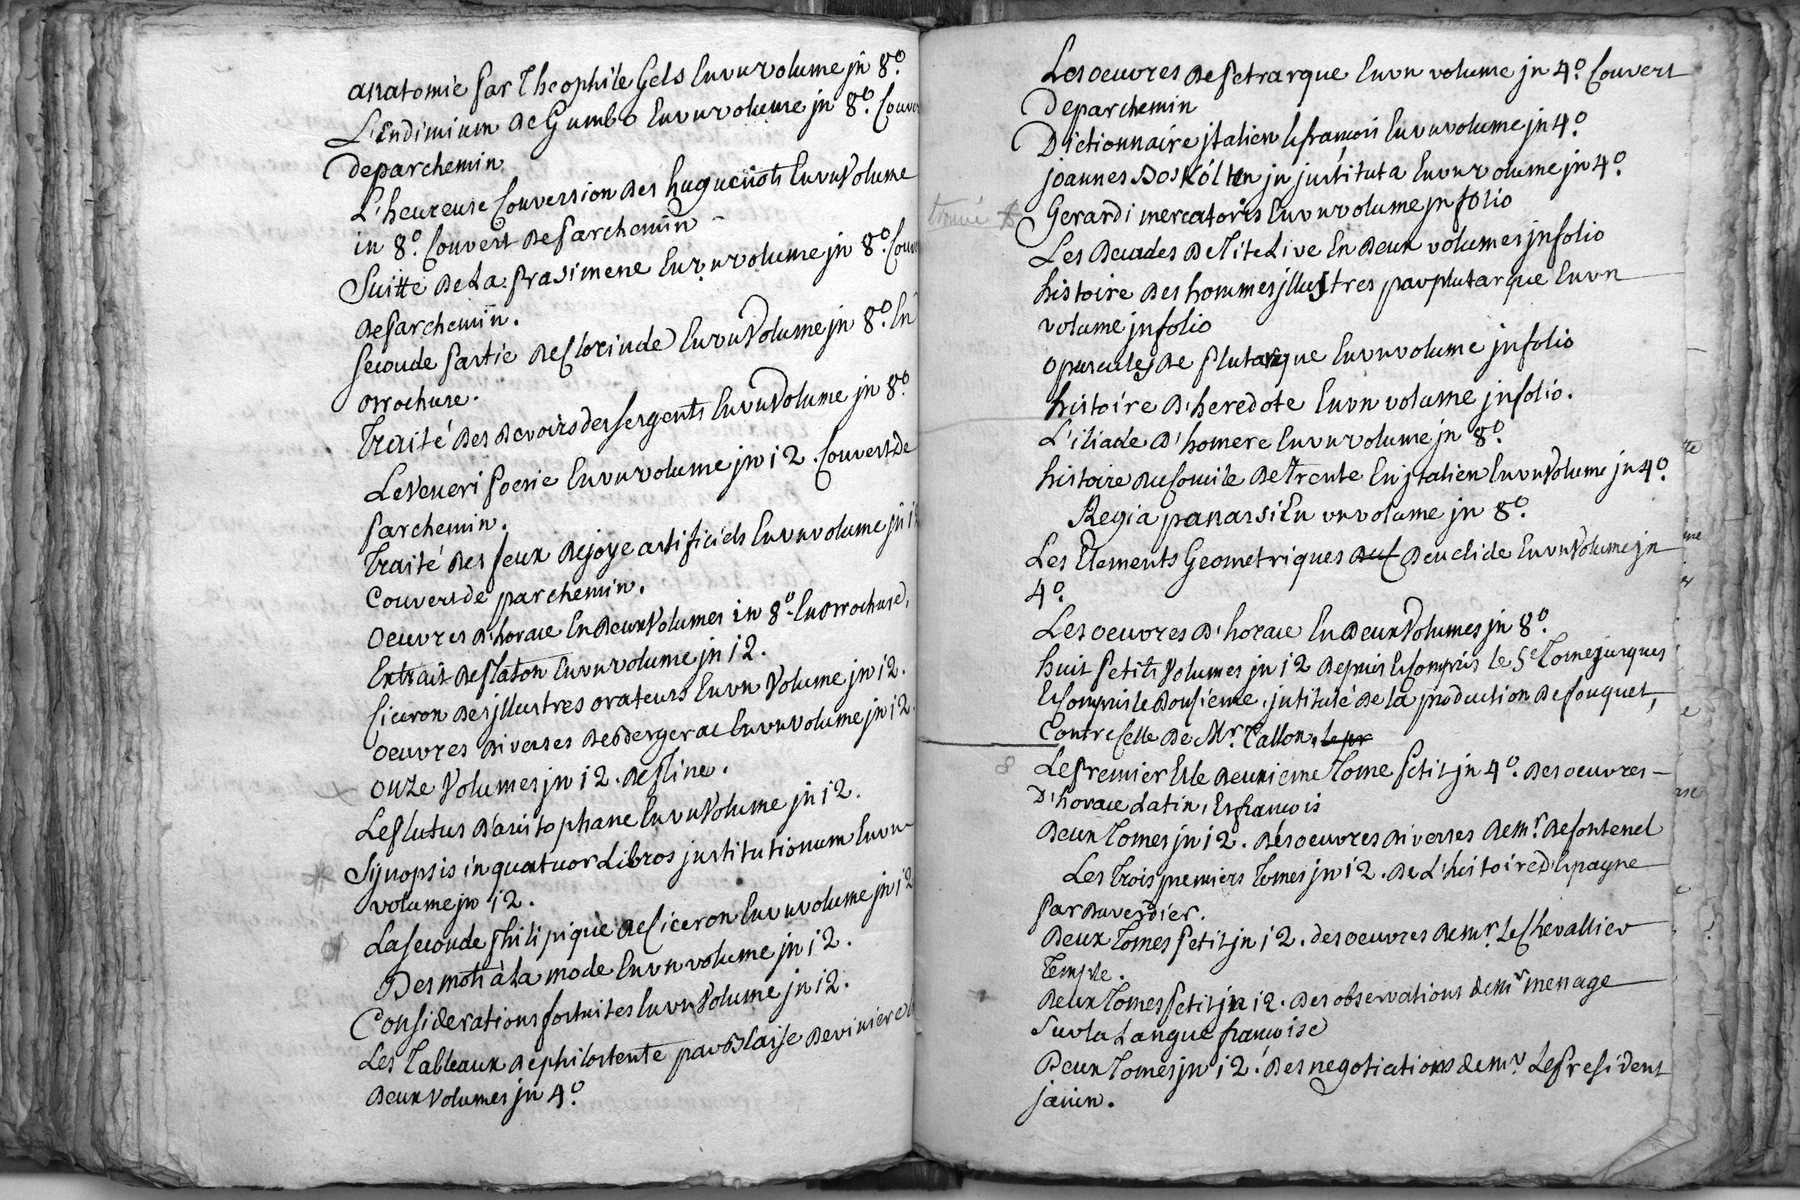 anatomie par Theophile Gels En un volume jn 8.º
L'Endimium De Gumbo En un volume jn 8.º Couver
de parchemin
L'heureuse Conversion des huguenots En un Volume
in 8.º Couvert De parchemin
Suitte De La prasimene En un volume jn 8.º Couv
De parchemin.
Seconde partie De Clorinde En un Volume jn 8.º En
Brochure.
Traité des Devoirs des sergents En un Volume jn 8.º
Le Veneri poesie En un volume jn 12. Couvert De
parchemin.
Traité des feux de joye artificiels En un volume jn 1
Couvert de parchemin.
Oeuvres D'horace En Deux Volumes in 8.º En Brochure.
Extrait De platon En un volume jn 12.
Ciceron des jllustres orateurs En un Volume jn 12.
Oeuvres Diverses De Bergerac En un volume jn 12
onze Volumes jn 12. De pline.
Le plutus D'aristophane En un Volume jn 12.
Synopsis in quatuor Libros justitutionum En un
volume jn 12.
La seconde philipique De Ciceron En un volume jn 12
Des mots à La mode En un volume jn 12.
Considerations fortuites En un Volume jn 12.
Les Tableaux de philostente par Blaise De viniere
Deux Volumes jn 4.º
Les oeuvres De petrarque En un volume jn 4.º Couvert
De parchemin
Dictionnaire jtalien & francois En un volume jn 4.º
joannes jn justituta En un volume jn 4.º
trouvé Gerardi mercatoris En un volume jn folio
Les Decades De Tite Live En Deux volumes jn folio
histoire des hommes jllustres par plutarque En un
volume jn folio
opuscules De plutarque En un volume jn folio
histoire D'heredote En un volume jn folio.
L'iliade D'homere En un volume jn 8.º
histoire du Concile De Trente En jtalien En un Volume jn 4.º
Regia panarsi En un volume jn 8.º
Les Elements Geometriques D'euclide En un Volume jn
4.º
Les oeuvres D'horace En Deux Volumes jn 8.º
huit petits Volumes jn 12 Depuis & Compris le 5.e Tome jusques
& Compris le Douzieme, jntitulé De la production De fouquet,
Contre Celle De Mr. Tallon,
Le premier & le Deuxieme Tome petit jn 4.º Des oeuvres
D'horace Latin, & francois
Deux Tomes jn 12. Des oeuvres Diverses De mr. De fontenel
Les Trois premiers Tomes jn 12. De L'histoire D'Espagne
par Duverdier.
Deux Tomes petit jn 12. des oeuvres De mr. Le Chevallier
Temple.
Deux Tomes petit jn 12. Des observations de mr menage
Sur la Langue francoise
Deux Tomes jn 12. Des negotiations de mr Le president
janin.